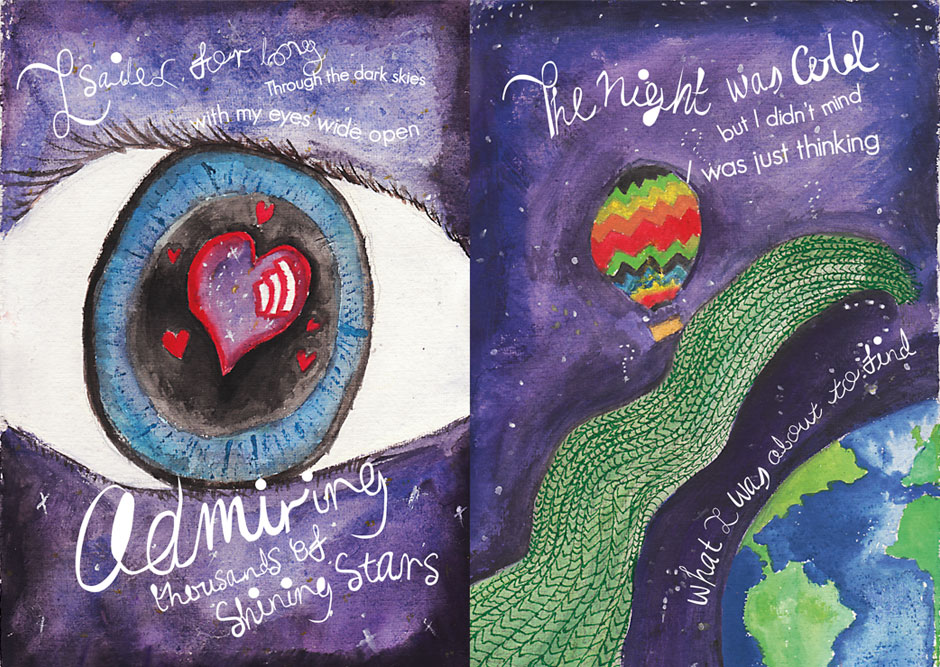 I sailed for long
Through the dark skies
with my eyes wide open
Admiring
thousands of
Shining Stars
The Night was Cold
but I didn't mind
I was just thinking
what I was about to find